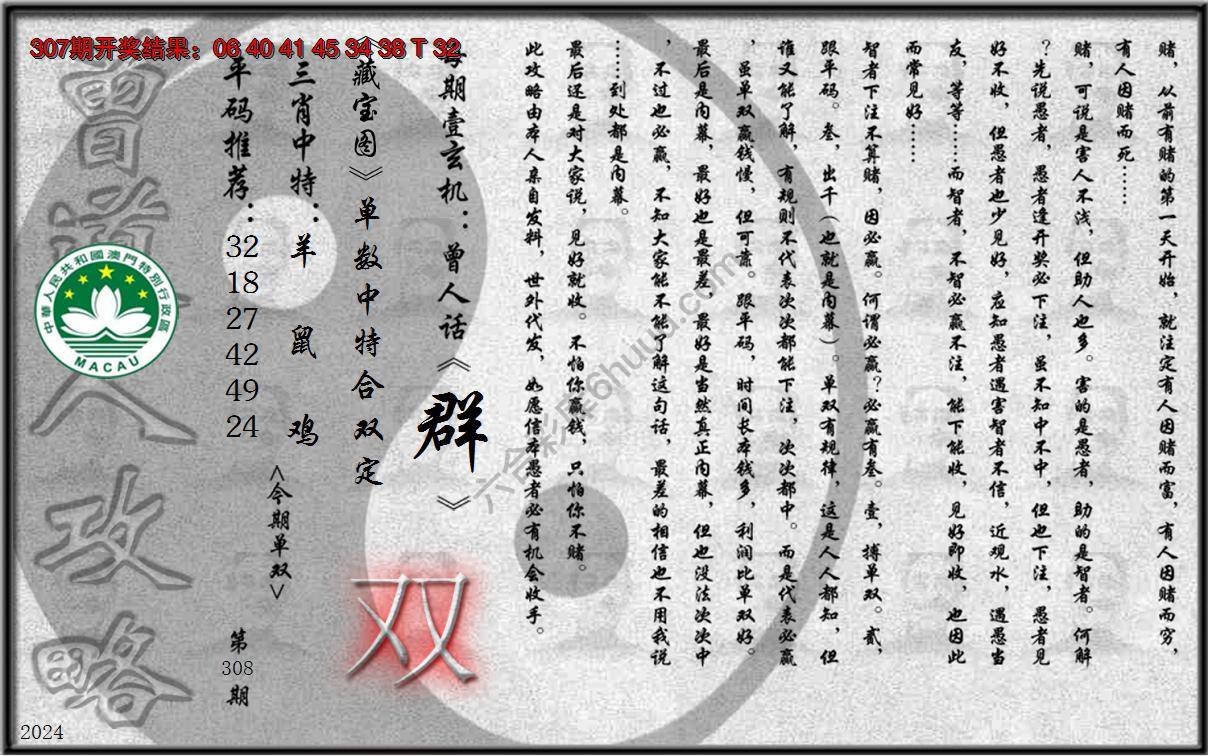 307期开奖结果：06 40 41 45 34 38 T 32
赌，从前有赌的第一天开始，就注定有人因赌而富，有人因赌而穷，
有人因赌而死……
赌，可说是害人不浅，但助人也多。害的是愚者，助的是智者。何解
？先说愚者，愚者逢开奖必下注，虽不知中不中，但也下注，愚者见
好不收，但愚者也少见好，应知愚者遇害智者不信，近观水，遇愚当
友，等等……而智者，不智必赢不注，能下能收，见好即收，也因此
而常见好……
智者下注不算赌，因必赢。何谓必赢？必赢有叁。壹，搏单双。贰，
跟平码。叁，出千（也就是内幕）。单双有规律，这是人人都知，但
谁又能了解，有规则不代表次次都能下注，次次都中。而是代表必赢
，虽单双赢钱慢，但可靠。跟平码，时间长本钱多，利润比单双好。
最后是内幕，最好也是最差，最好是当然真正内幕，但也没法次次中
，不过也必赢，不知大家能不能了解这句话，最差的相信也不用我说
……到处都是内幕。
最后还是对大家说，见好就收。不怕你赢钱，只怕你不赌。
此攻略由本人亲自发料，世外代发，如愿信本愚者必有机会收手。
每期壹玄机：曾人话《群》
双
《藏宝图》单数中特合双定
三肖中特：羊 鼠 鸡
<今期单双>
平码推荐：
32
18
27
42
49
24
第
308
期
曾道人攻略
中華人民共和國澳門特別行政區
MACAU
六合彩库6huuu.com
2024